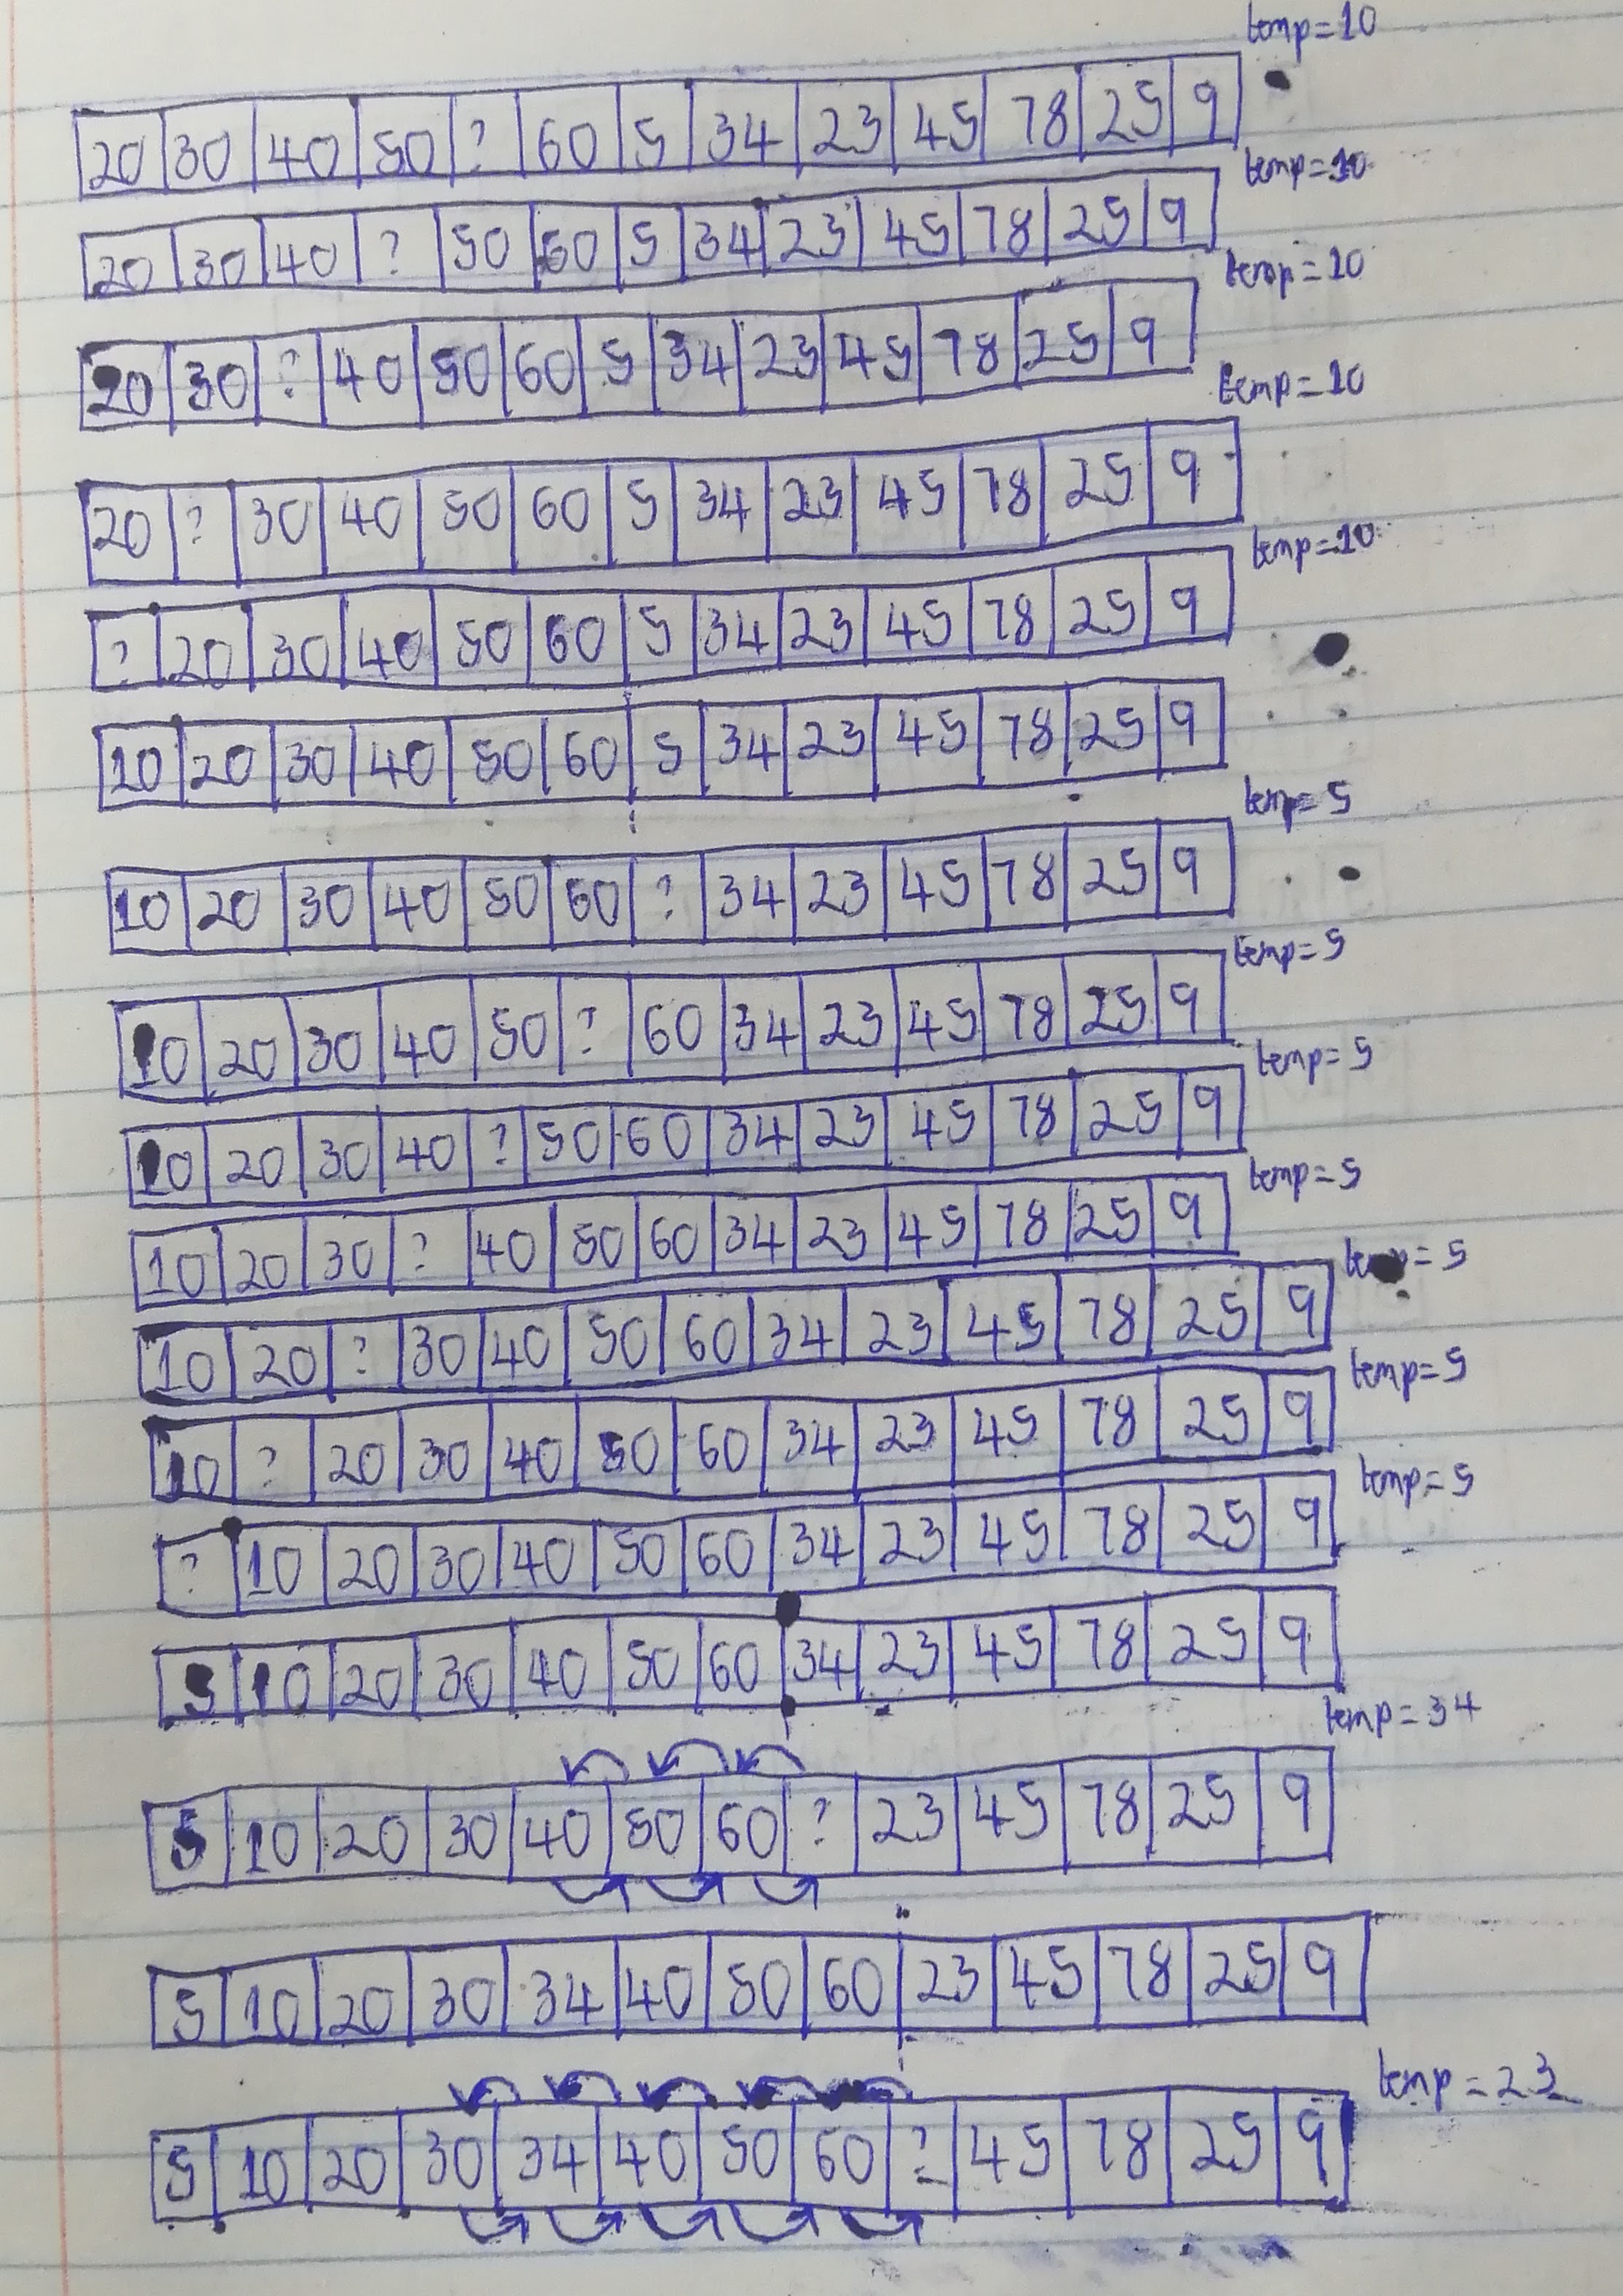 temp=10
20 30 40 50 ? 60 5 34 23 45 78 25 9
temp=10
20 30 40 ? 50 60 5 34 23 45 78 25 9
temp=10
20 30 ? 40 50 60 5 34 23 45 78 25 9
temp=10
20 ? 30 40 50 60 5 34 23 45 78 25 9
temp=10
? 20 30 40 50 60 5 34 23 45 78 25 9
10 20 30 40 50 60 5 34 23 45 78 25 9
temp=5
10 20 30 40 50 60 ? 34 23 45 78 25 9
temp=5
10 20 30 40 50 ? 60 34 23 45 78 25 9
temp=5
10 20 30 40 ? 50 60 34 23 45 78 25 9
temp=5
10 20 30 ? 40 50 60 34 23 45 78 25 9
temp=5
10 20 ? 30 40 50 60 34 23 45 78 25 9
temp=5
10 ? 20 30 40 50 60 34 23 45 78 25 9
temp=5
? 10 20 30 40 50 60 34 23 45 78 25 9
5 10 20 30 40 50 60 34 23 45 78 25 9
temp=34
5 10 20 30 40 50 60 ? 23 45 78 25 9
5 10 20 30 34 40 50 60 23 45 78 25 9
temp=23
5 10 20 30 34 40 50 60 ? 45 78 25 9